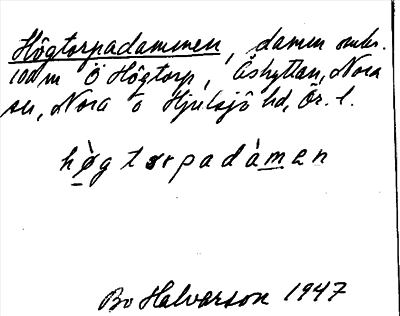 Högtorpadammen, damm omkr.
100 m Ö Högtorp, Åshyttan, Nora
sn, Nora o Hjulsjö hd, Ör. l.
hø̀gtorpadàmen
Bo Halvarson 1947